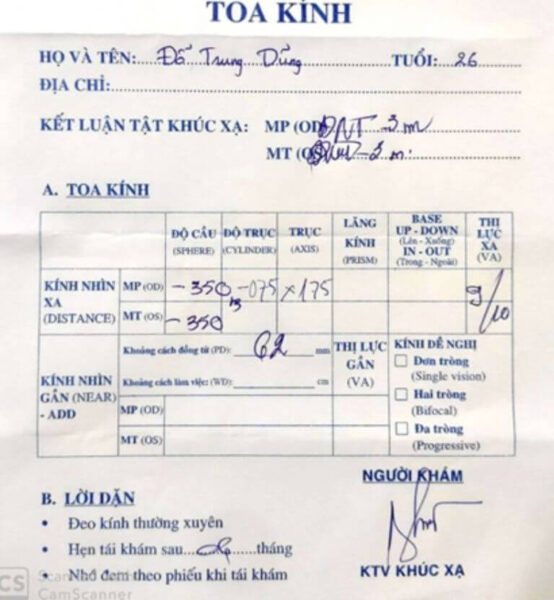 TOA KÍNH
HỌ VÀ TÊN: Đỗ Trung Dũng TUỔI: 26
ĐỊA CHỈ:
KẾT LUẬN TẬT KHÚC XẠ: MP (OD) ĐNT 3m
MT (OS) ĐNT 3m
A. TOA KÍNH
ĐỘ CẦU (SPHERE) ĐỘ TRỤ (CYLINDER) TRỤC (AXIS) LĂNG KÍNH (PRISM) BASE UP - DOWN (Lên - Xuống) IN - OUT (Trong - Ngoài) THỊ LỰC XA (VA)
KÍNH NHÌN XA (DISTANCE) MP (OD) -350 -075 x 175 9/10
MT (OS) -350
KÍNH NHÌN GẦN (NEAR) - ADD
Khoảng cách đồng tử (PD): 62 mm THỊ LỰC GẦN (VA) KÍNH ĐỀ NGHỊ
Khoảng cách làm việc: (WD): cm
Đơn tròng
(Single vision)
MP (OD)
Hai tròng
(Bifocal)
MT (OS)
Đa tròng
(Progressive)
NGƯỜI KHÁM
B. LỜI DẶN
• Đeo kính thường xuyên
• Hẹn tái khám sau 06 tháng
• Nhớ đem theo phiếu khi tái khám
KTV KHÚC XẠ
CS
CamScanner